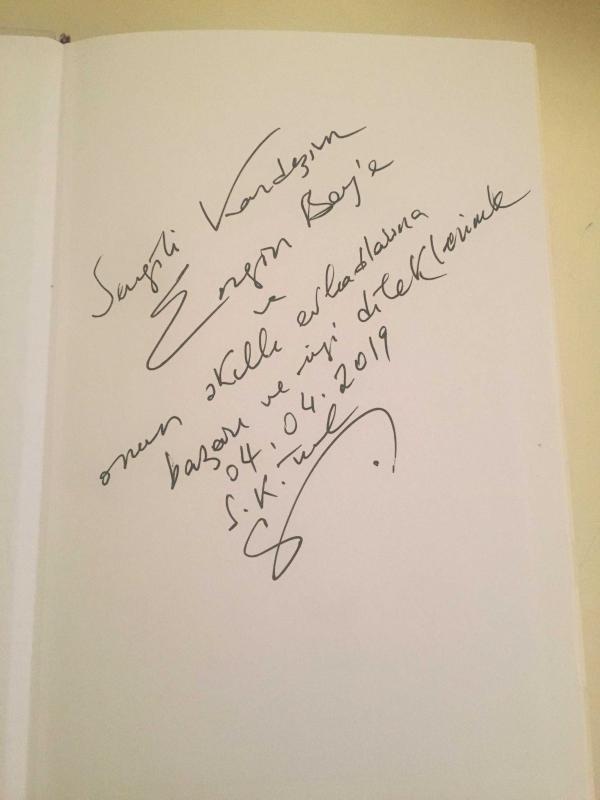 Sevgili Kardeşim
Engin Bey'e
ve
onun akıllı evlatlarına
başarı ve iyi dileklerimle
04.04.2019
S.K. Tural